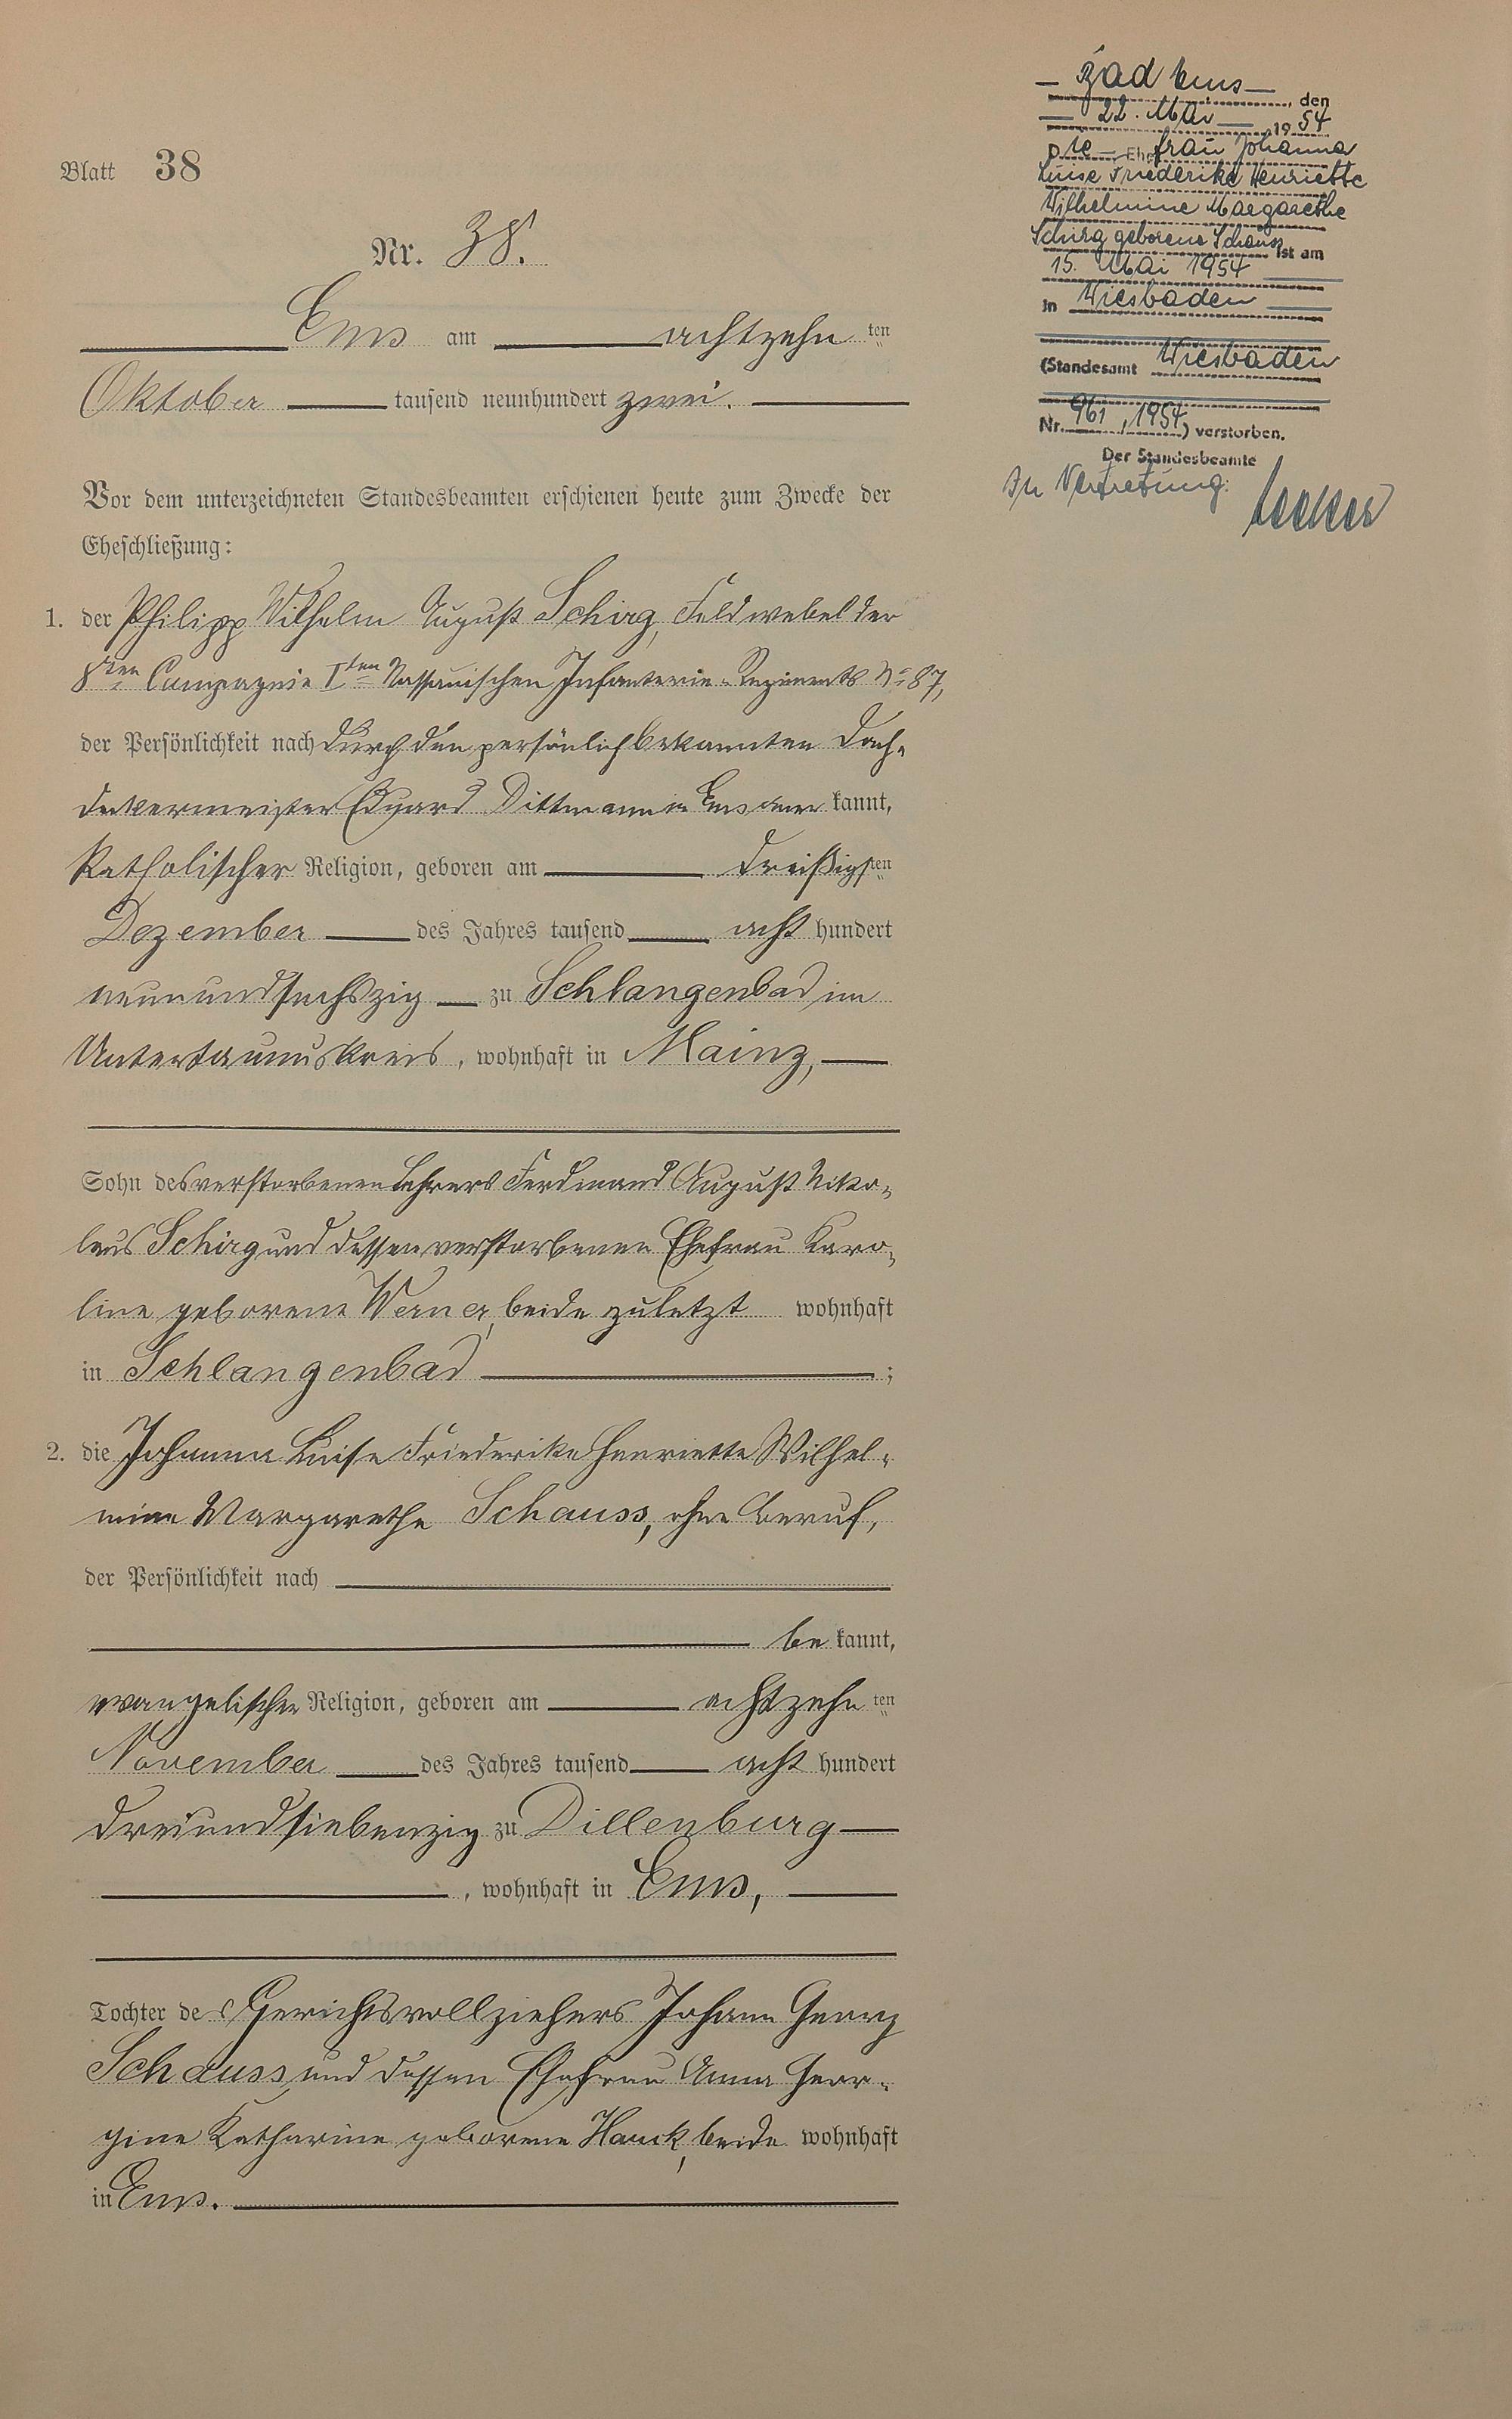 Blatt 38
Nr. 38.
Ems am achtzehn ten
Oktober tausend neunhundert zwei.
Vor dem unterzeichneten Standesbeamten erschienen heute zum Zwecke der
Eheschließung:
1. der Philipp Wilhelm August Schirg, Feldwebel der
8ten Compagnie Iten Nassauischen Infanterie-Regiments No 87,
der Persönlichkeit nach durch den persönlich bekannten Dach-
deckermeister Eduard Dittmann in Ems aner kannt,
katholischer Religion, geboren am dreißigsten
Dezember des Jahres tausend acht hundert
neunundsechszig zu Schlangenbad im
Untertaunuskreis, wohnhaft in Mainz,
Sohn des verstorbenen Lehrers Ferdinand August Niko-
laus Schirg und dessen verstorbenen Ehefrau Karo-
line geborene Werner, beide zuletzt wohnhaft
in Schlangenbad ;
2. die Johanna Luise Friederike Henriette Wilhel-
mine Margarethe Schauss, ohne Beruf,
der Persönlichkeit nach
be kannt,
evangelischer Religion, geboren am achtzehn ten
November des Jahres tausend acht hundert
dreiundsiebenzig zu Dillenburg
, wohnhaft in Ems,
Tochter des Gerichtsvollziehers Johann Georg
Schauss und dessen Ehefrau Anna Geor-
gine Katharine geborene Hauck, beide wohnhaft
in Ems.
Bad Ems , den
22. Mai 1954
Die Ehefrau Johanna
Luise Friederike Henriette
Wilhelmine Margarethe
Schirg geborene Schauss ist am
15. Mai 1954
in Wiesbaden
(Standesamt Wiesbaden
Nr. 961 , 1954 ) verstorben.
Der Standesbeamte
In Vertretung: